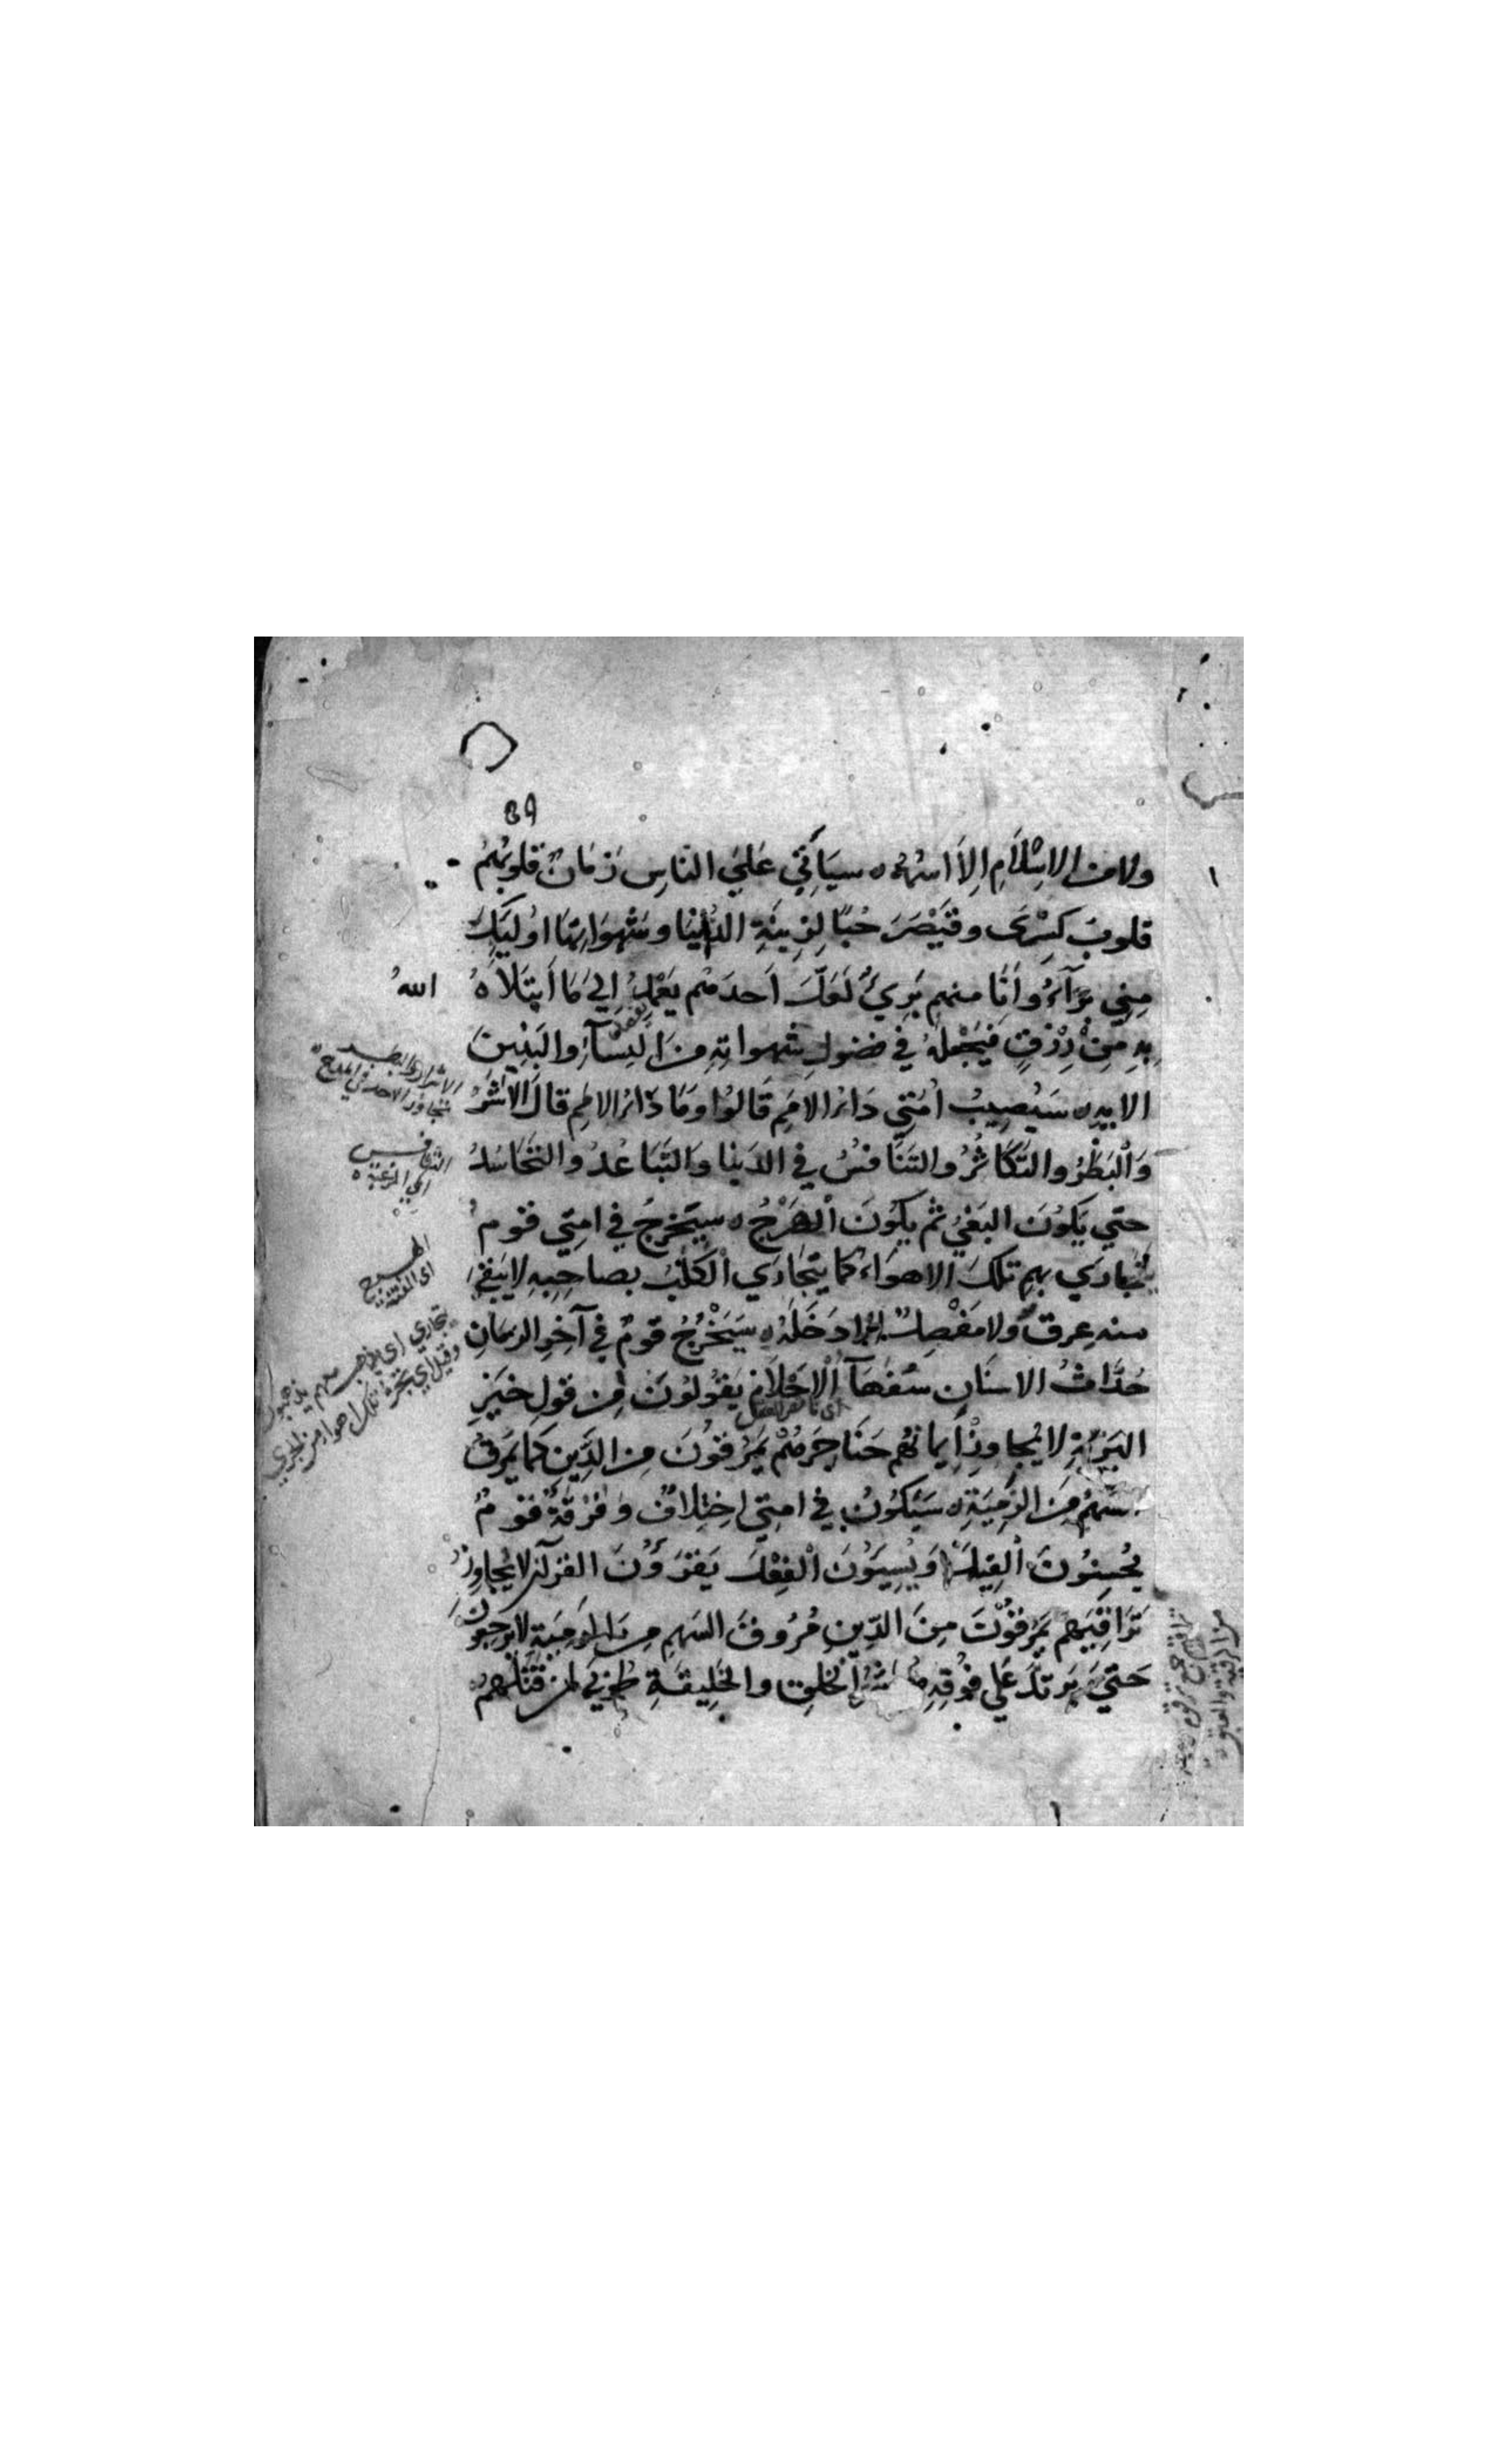 39
ولا من الاِسْلَامِ اِلَّا اسْمُهُ ه سيَأتِي عَلَي النَاسِ زَمَانٌ قلوبُهُمْ
قلوبُ كِسْرَى وقَيْصَرَ حُبًّا لِزِينَةِ الدُّنيَا وشَهَوَاتِهَا اوُلَيِكَ
مِنِي بُرَآءُ وأنَا منهم بَرِيٌ لَعَلَّ اَحدَهُم يَعْمِدُ اِلَي مَا اَبْتَلَاهُ اللهُ
بِهِ مِنْ رِزْقٍ فَيَجْعَلَهُ في فضول شهواتِهِ مِنَ النِسَآءِ والبَنِينَ
الابد ه سَيُصِيبُ اُمَّتِي دَاءُ الاُمَمِ قَالُوا ومَا دَاءُ الامَمِ قالَ الأشَرُ
وَالْبَطَرُ والتَّكَاثُرُ والتَنَافسُ في الدنيا وَالتَّبَاعُدُ والتَّحَاسُدُ
حتي يَكُونَ البَغْيُ ثُم يَكُونَ الْهَرْجُ ه سيَخرُجُ في امتِي قوم
تَجَارَي بِهِم تلكَ الاهوَاءُ كَمَا يَتَجَارَي الْكَلَبُ بصاحِبِهِ لا يَبْقَي
منه عِرقٌ ولا مَفْصِلٌ اِلا دَخَلَهُ ه سَيَخْرُجُ قومٌ فِي آخِرِ الزمَانِ
حُدَّاثُ الاسنَانِ سُفَهَآءُ الْاحْلَامِ يَقُولُونَ مِن قولِ خَيْرِ
اي ناقص العقل
البَرِيَّةِ لا يُجاوِزُ اِيمانُهُم حَنَاجِرَهُمْ يَمْرُقُونَ مِنَ الدِّينِ كَمَا يَمْرُقُ
السَّهْمُ مِنَ الرَّمِيَّةِ ه سَيَكُونُ في امتِي اختِلافٌ وَفُرْقَةٌ قومٌ
يُحْسِنُونَ الْقِيلَ وَيُسِيؤُنَ الْفِعْلَ يَقْرَؤُنَ القرآنَ لا يُجَاوِزُ
تَرَاقِيَهِم يَمْرُقُونَ مِنَ الدِّينِ مُرُوقَ السَهمِ مِنَ الرَّمِيَّةِ لا يَرجِعُونَ
حَتَي يَرتَدَّ عَلَي فُوقِهِ هُم شَرُّ الْخَلقِ والخَلِيقَةِ طُوبَي لِمَن قَتَلَهُمْ
التنافس
اي الرغبة ه
الهرج
اي الفتنة
تجاري اي